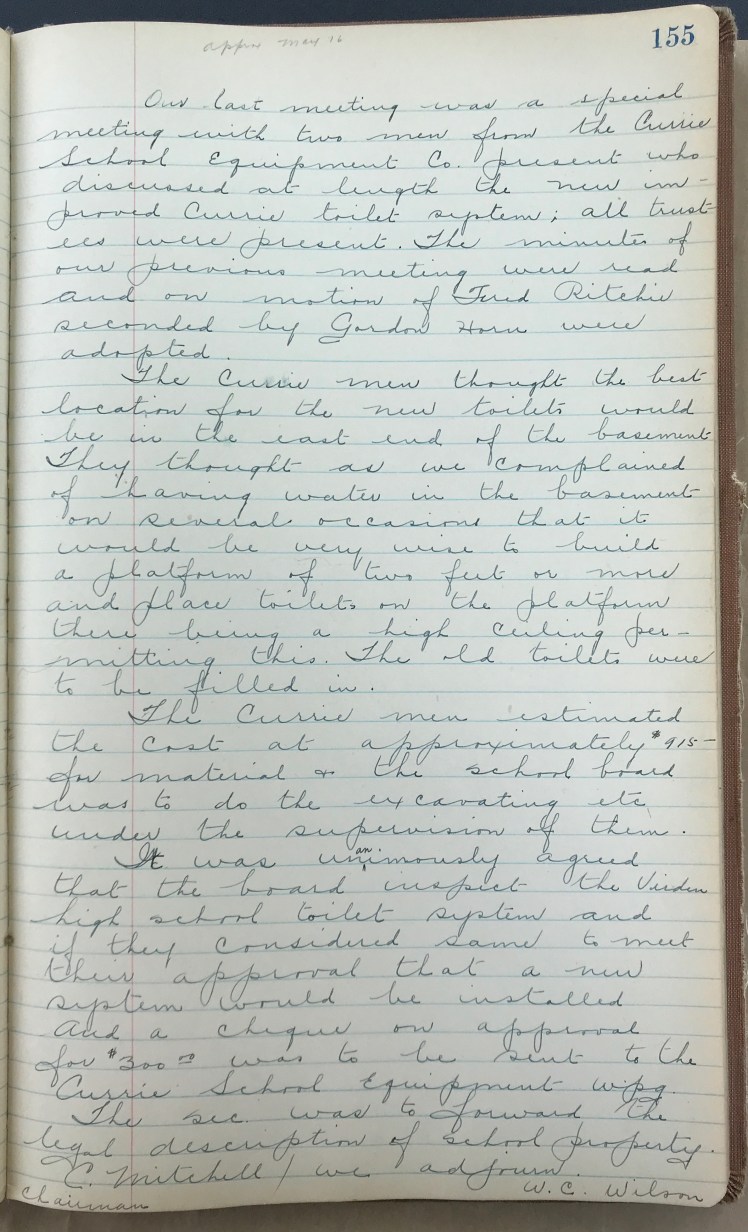 155
approx may 16
Our last meeting was a special
meeting with two men from the Currie
School Equipment Co. present who
discussed at length the new im-
proved Currie toilet system; all trust-
ees were present. The minutes of
our previous meeting were read
and on motion of Fred Ritchie
seconded by Gordon Horn were
adopted.
The Currie men thought the best
location for the new toilets would
be in the east end of the basement
They thought as we complained
of having water in the basement
on several occasions that it
would be very wise to build
a platform of two feet or more
and place toilets on the platform
there being a high ceiling per-
mitting this. The old toilets were
to be filled in.
The Currie men estimated
the cost at approximately $915-
for material & the school board
was to do the excavating etc
under the supervision of them.
It was unanimously agreed
that the board inspect the Virden
high school toilet system and
if they considered same to meet
their approval that a new
system would be installed
And a cheque on approval
for $300 00 was to be sent to the
Currie School Equipment Wpg.
The sec. was to forward the
legal description of school property.
C. Mitchell / we adjourn.
Chairman W. C. Wilson